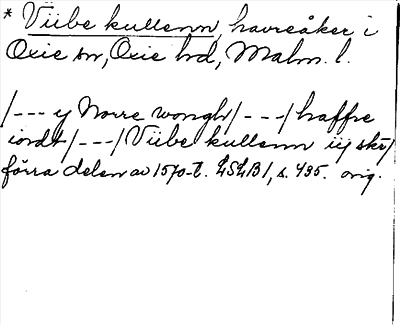 * Viibe kullenn, havreåker i
Oxie sn, Oxie hd, Malm. l.
/--- y Norre wongh/---/haffre
iordt/---/Viibe kullenn iij skr/
förra delen av 1570-t. LSLB1, s. 495. orig.